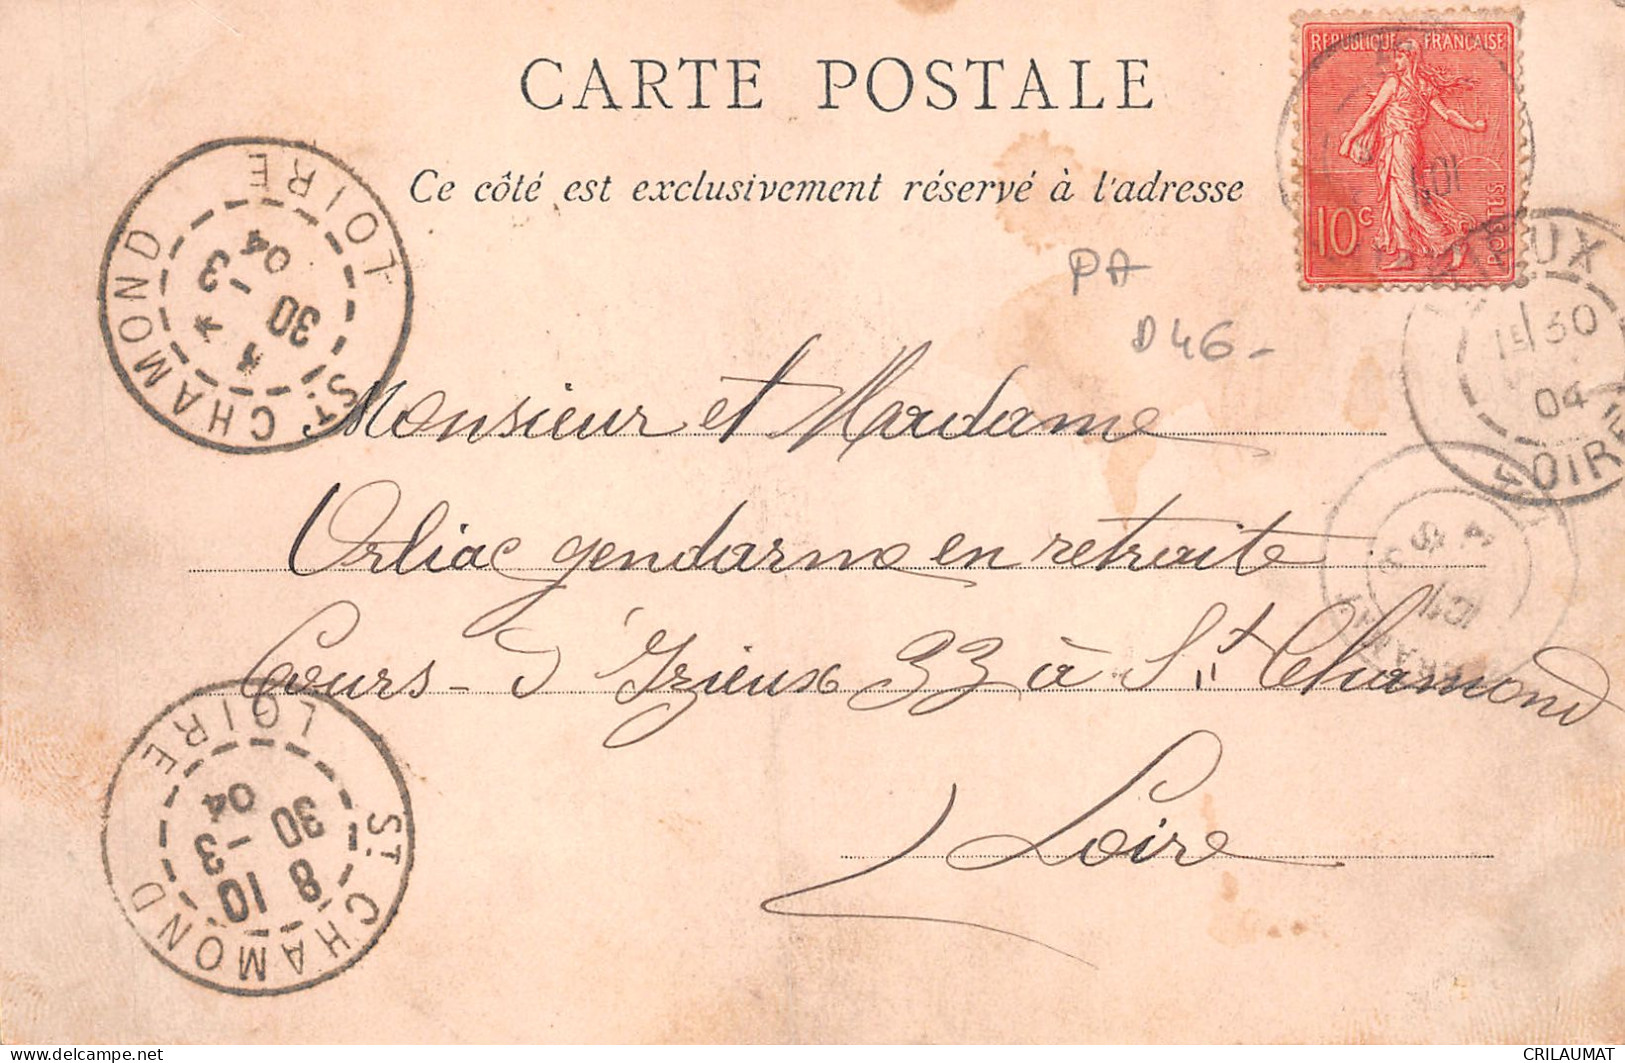 CARTE POSTALE
Ce côté est exclusivement réservé à l'adresse
REPUBLIQUE FRANÇAISE
10c
POSTES
PA
D46-
Monsieur et Mardame
Orliac gendarme en retraite
Cours- d'Izieux 33 à St Chamond
Loire
ST CHAMOND
LOIRE
30
-3
04
ST CHAMOND
LOIRE
8 10
30 -3
04
IEUX
1E/30
04
LOIRE
CRILAUMAT